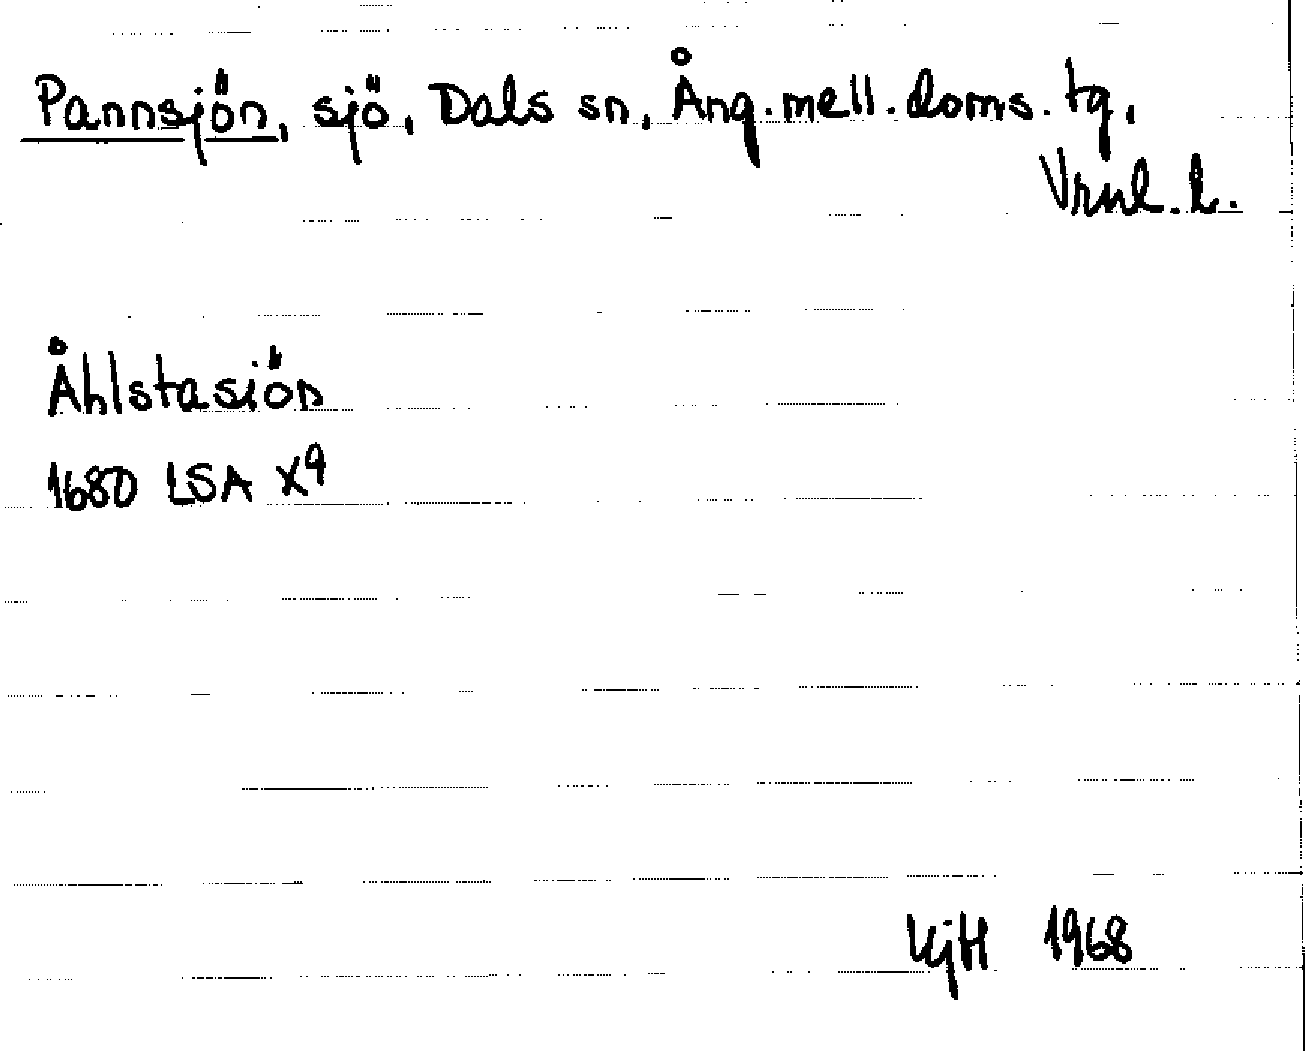 Pannsjön, sjö, Dals sn, Ång.mell.doms.tg,
Vrnl.l.
Åhlstasiön
1680 LSA X9
KjH 1968